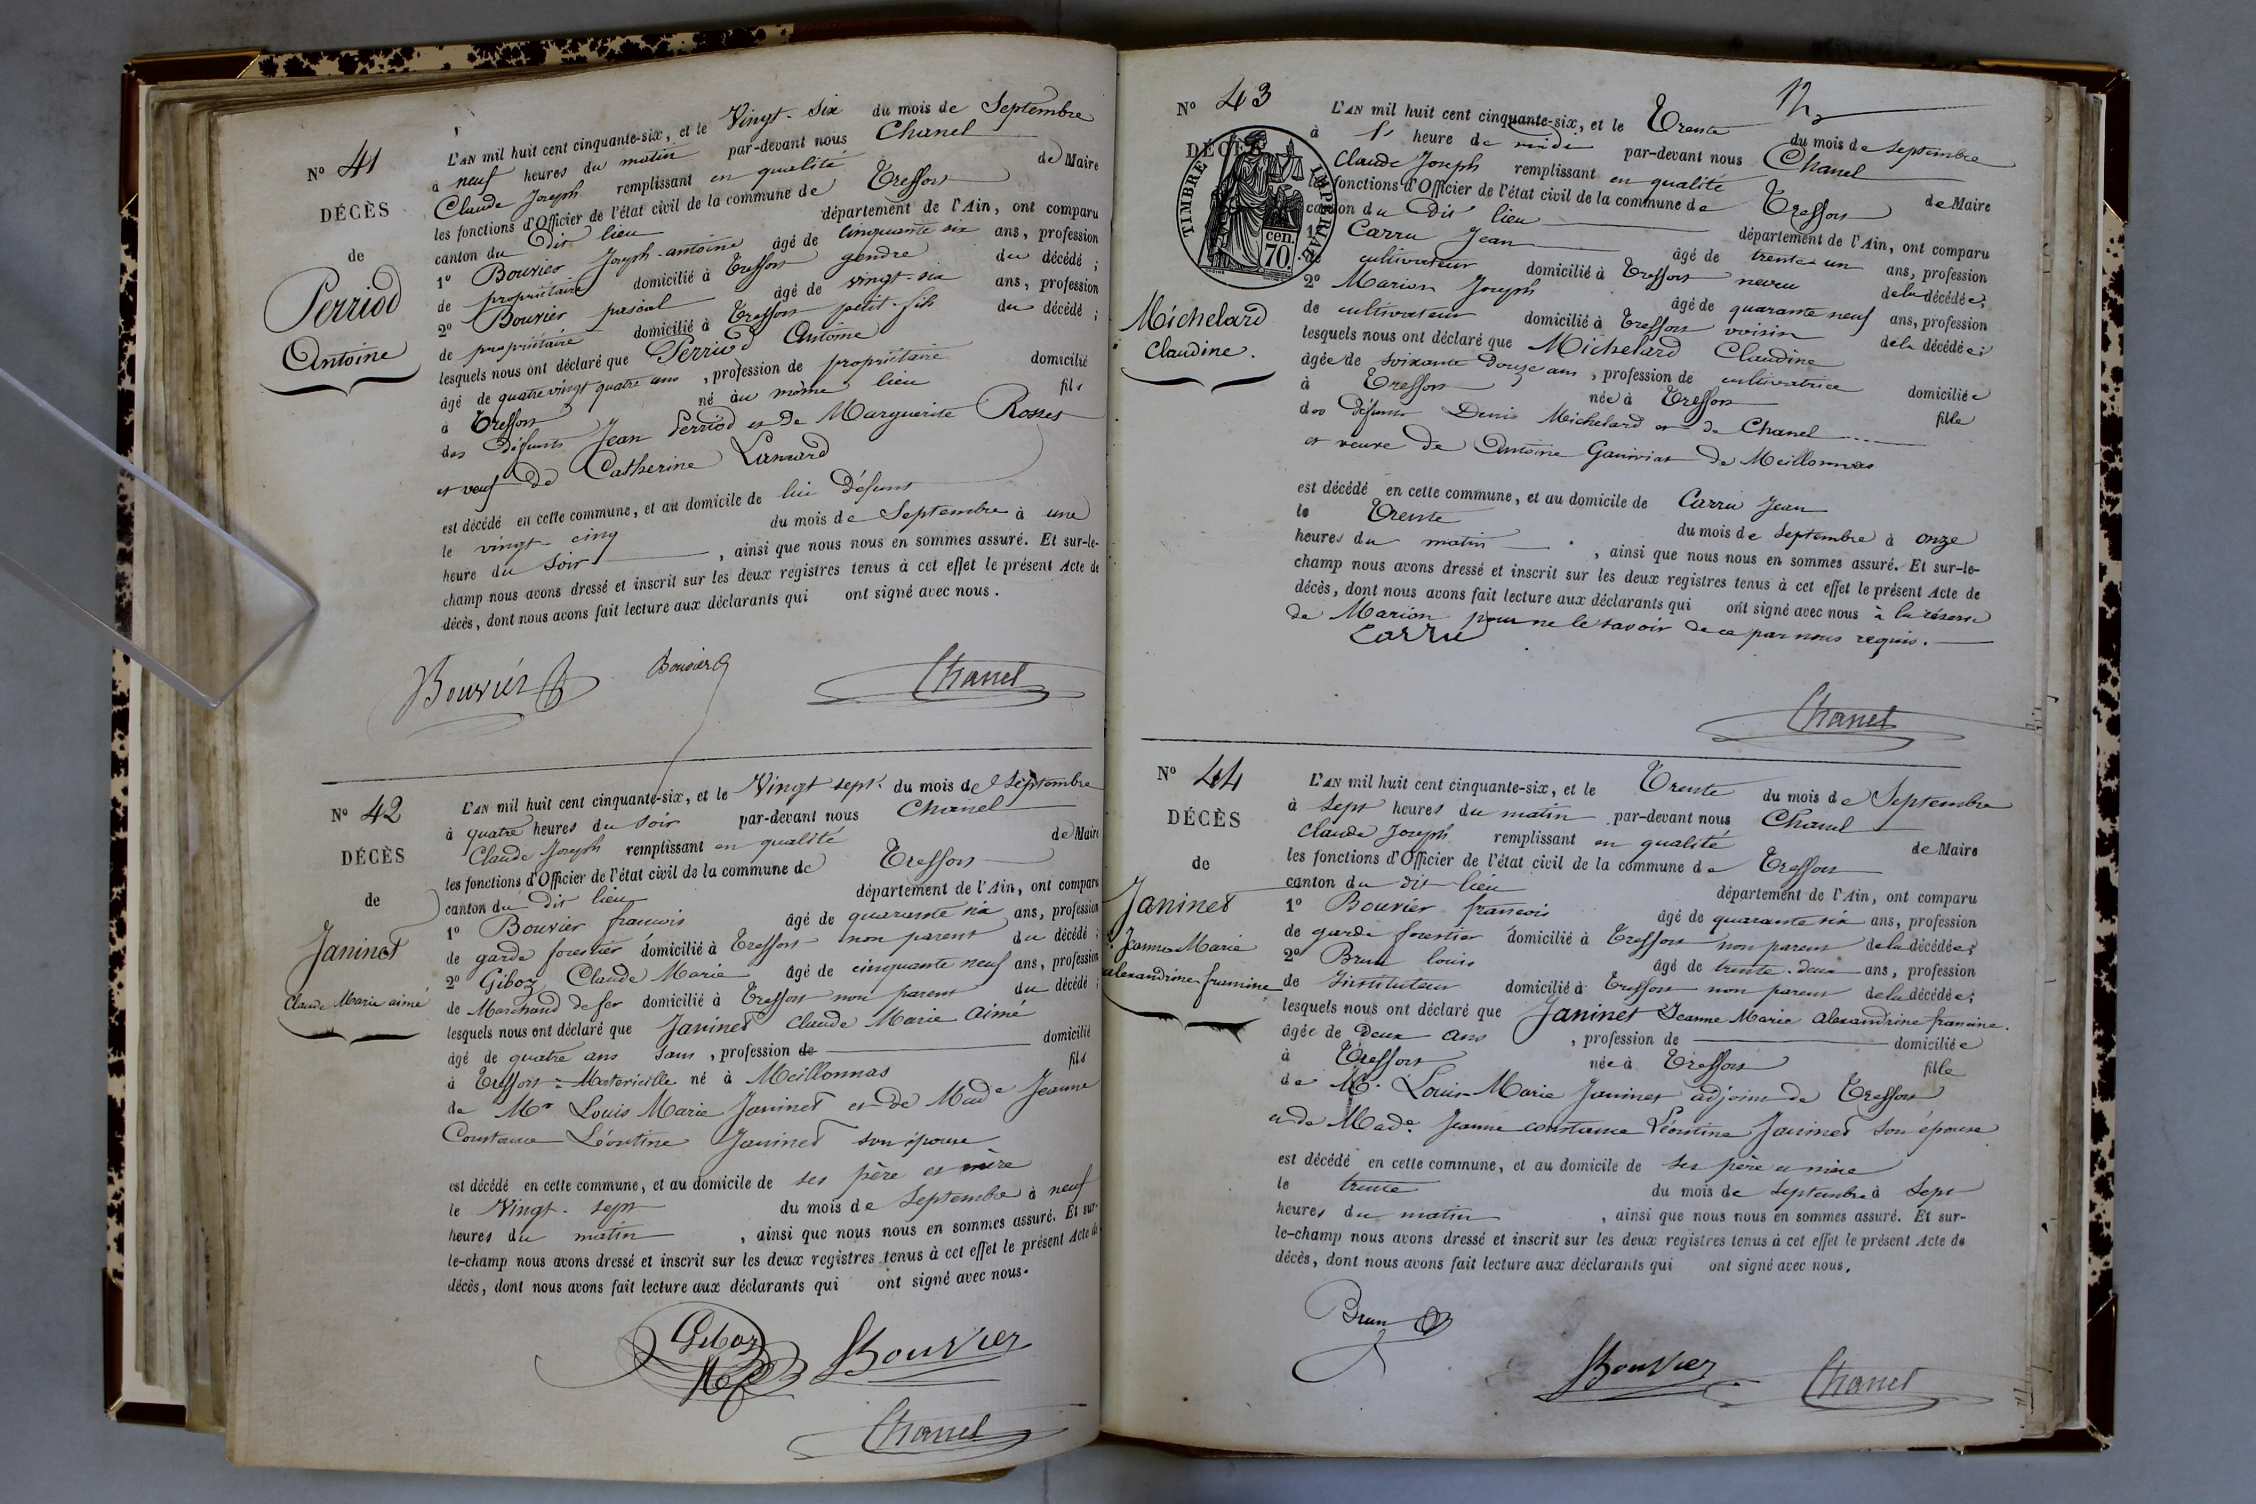 N° 41
DÉCÈS
de
Perriod
Antoine
L'AN mil huit cent cinquante-six, et le Vingt-Six du mois de Septembre
à neuf heures du matin par-devant nous Chanel
Claude Joseph remplissant en qualité de Maire
les fonctions d'Officier de l'état civil de la commune de Treffort
canton du dit lieu département de l'Ain, ont comparu
1° Bouvier Joseph-antoine âgé de Cinquante six ans, profession
de propriétaire domicilié à Treffort gendre du décédé ;
2° Bouvier pascal âgé de vingt-six ans, profession
de propriétaire domicilié à Treffort petit-fils du décédé ;
lesquels nous ont déclaré que Perriod Antoine
âgé de quatre vingt quatre ans, profession de propriétaire domicilié
à Treffort né au même lieu fils
des défunts Jean Perriod et de Marguerite
et veuf de Catherine
est décédé en cette commune, et au domicile de lui défunt
le vingt-cinq du mois de Septembre à une
heure du Soir, ainsi que nous nous en sommes assuré. Et sur-le-
champ nous avons dressé et inscrit sur les deux registres tenus à cet effet le présent Acte de
décès, dont nous avons fait lecture aux déclarants qui ont signé avec nous.
Bouvier Bouvier Chanel
N° 42
DÉCÈS
de
Janinet
Claude Marie aimé
L'AN mil huit cent cinquante-six, et le Vingt sept du mois de Septembre
à quatre heures du Soir par-devant nous Chanel
Claude Joseph remplissant en qualité de Maire
les fonctions d'Officier de l'état civil de la commune de Treffort
canton du dit lieu département de l'Ain, ont comparu
1° Bouvier francois âgé de quarante six ans, profession
de garde forestier domicilié à Treffort non parent du décédé ;
2° Giboz Claude Marie âgé de cinquante neuf ans, profession
de Marchand de fer domicilié à Treffort non parent du décédé ;
lesquels nous ont déclaré que Janinet Claude Marie Aimé
âgé de quatre ans Sans, profession de domicilié
à Treffort né à Meillonnas fils
de Mr Louis Marie Janinet et de Made Jeanne
Constance Léontine Janinet son épouse
est décédé en cette commune, et au domicile de ses père et mère
le Vingt-sept du mois de Septembre à neuf
heures du matin, ainsi que nous nous en sommes assuré. Et sur-
le-champ nous avons dressé et inscrit sur les deux registres tenus à cet effet le présent Acte de
décès, dont nous avons fait lecture aux déclarants qui ont signé avec nous.
Giboz Bouvier
Chanel
N° 43
DÉCÈS
TIMBRE IMPÉRIAL
cen.
70.
Michelard
Claudine.
L'AN mil huit cent cinquante-six, et le Trente du mois de Septembre
à heure de midi par-devant nous Chanel
Claude Joseph remplissant en qualité de Maire
les fonctions d'Officier de l'état civil de la commune de Treffort
canton du dit lieu département de l'Ain, ont comparu
1° Carru Jean âgé de trente-un ans, profession
de cultivateur domicilié à Treffort neveu de la décédée ;
2° Marion Joseph âgé de quarante neuf ans, profession
de cultivateur domicilié à Treffort voisin de la décédée ;
lesquels nous ont déclaré que Michelard Claudine
âgée de soixante douze ans, profession de cultivatrice domiciliée
à Treffort née à Treffort fille
des défunts Denis Michelard et de Chanel
et veuve de Antoine de Meillonnas
est décédé en cette commune, et au domicile de Carru Jean
le Trente du mois de Septembre à onze
heures du matin, ainsi que nous nous en sommes assuré. Et sur-le-
champ nous avons dressé et inscrit sur les deux registres tenus à cet effet le présent Acte de
décès, dont nous avons fait lecture aux déclarants qui ont signé avec nous à la réserve
de Marion pour ne le savoir de ce par nous requis.
Carru
Chanel
N° 44
DÉCÈS
de
Janinet
Jeanne Marie
alexandrine francine
L'AN mil huit cent cinquante-six, et le Trente du mois de Septembre
à Sept heures du matin par-devant nous Chanel
Claude Joseph remplissant en qualité de Maire
les fonctions d'Officier de l'état civil de la commune de Treffort
canton du dit lieu département de l'Ain, ont comparu
1° Bouvier francois âgé de quarante six ans, profession
de garde forestier domicilié à Treffort non parent de la décédée ;
2° Brun louis âgé de trente-deux ans, profession
de Instituteur domicilié à Treffort non parent de la décédée ;
lesquels nous ont déclaré que Janinet Jeanne Marie alexandrine francine.
âgée de Deux ans, profession de domiciliée
à Treffort née à Treffort fille
de Mr. Louis-Marie Janinet adjoint de Treffort
et de Made. Jeanne constance Léontine Janinet son épouse
est décédé en cette commune, et au domicile de ses père et mère
le trente du mois de Septembre à Sept
heures du matin, ainsi que nous nous en sommes assuré. Et sur-
le-champ nous avons dressé et inscrit sur les deux registres tenus à cet effet le présent Acte de
décès, dont nous avons fait lecture aux déclarants qui ont signé avec nous.
Brun
Bouvier Chanel